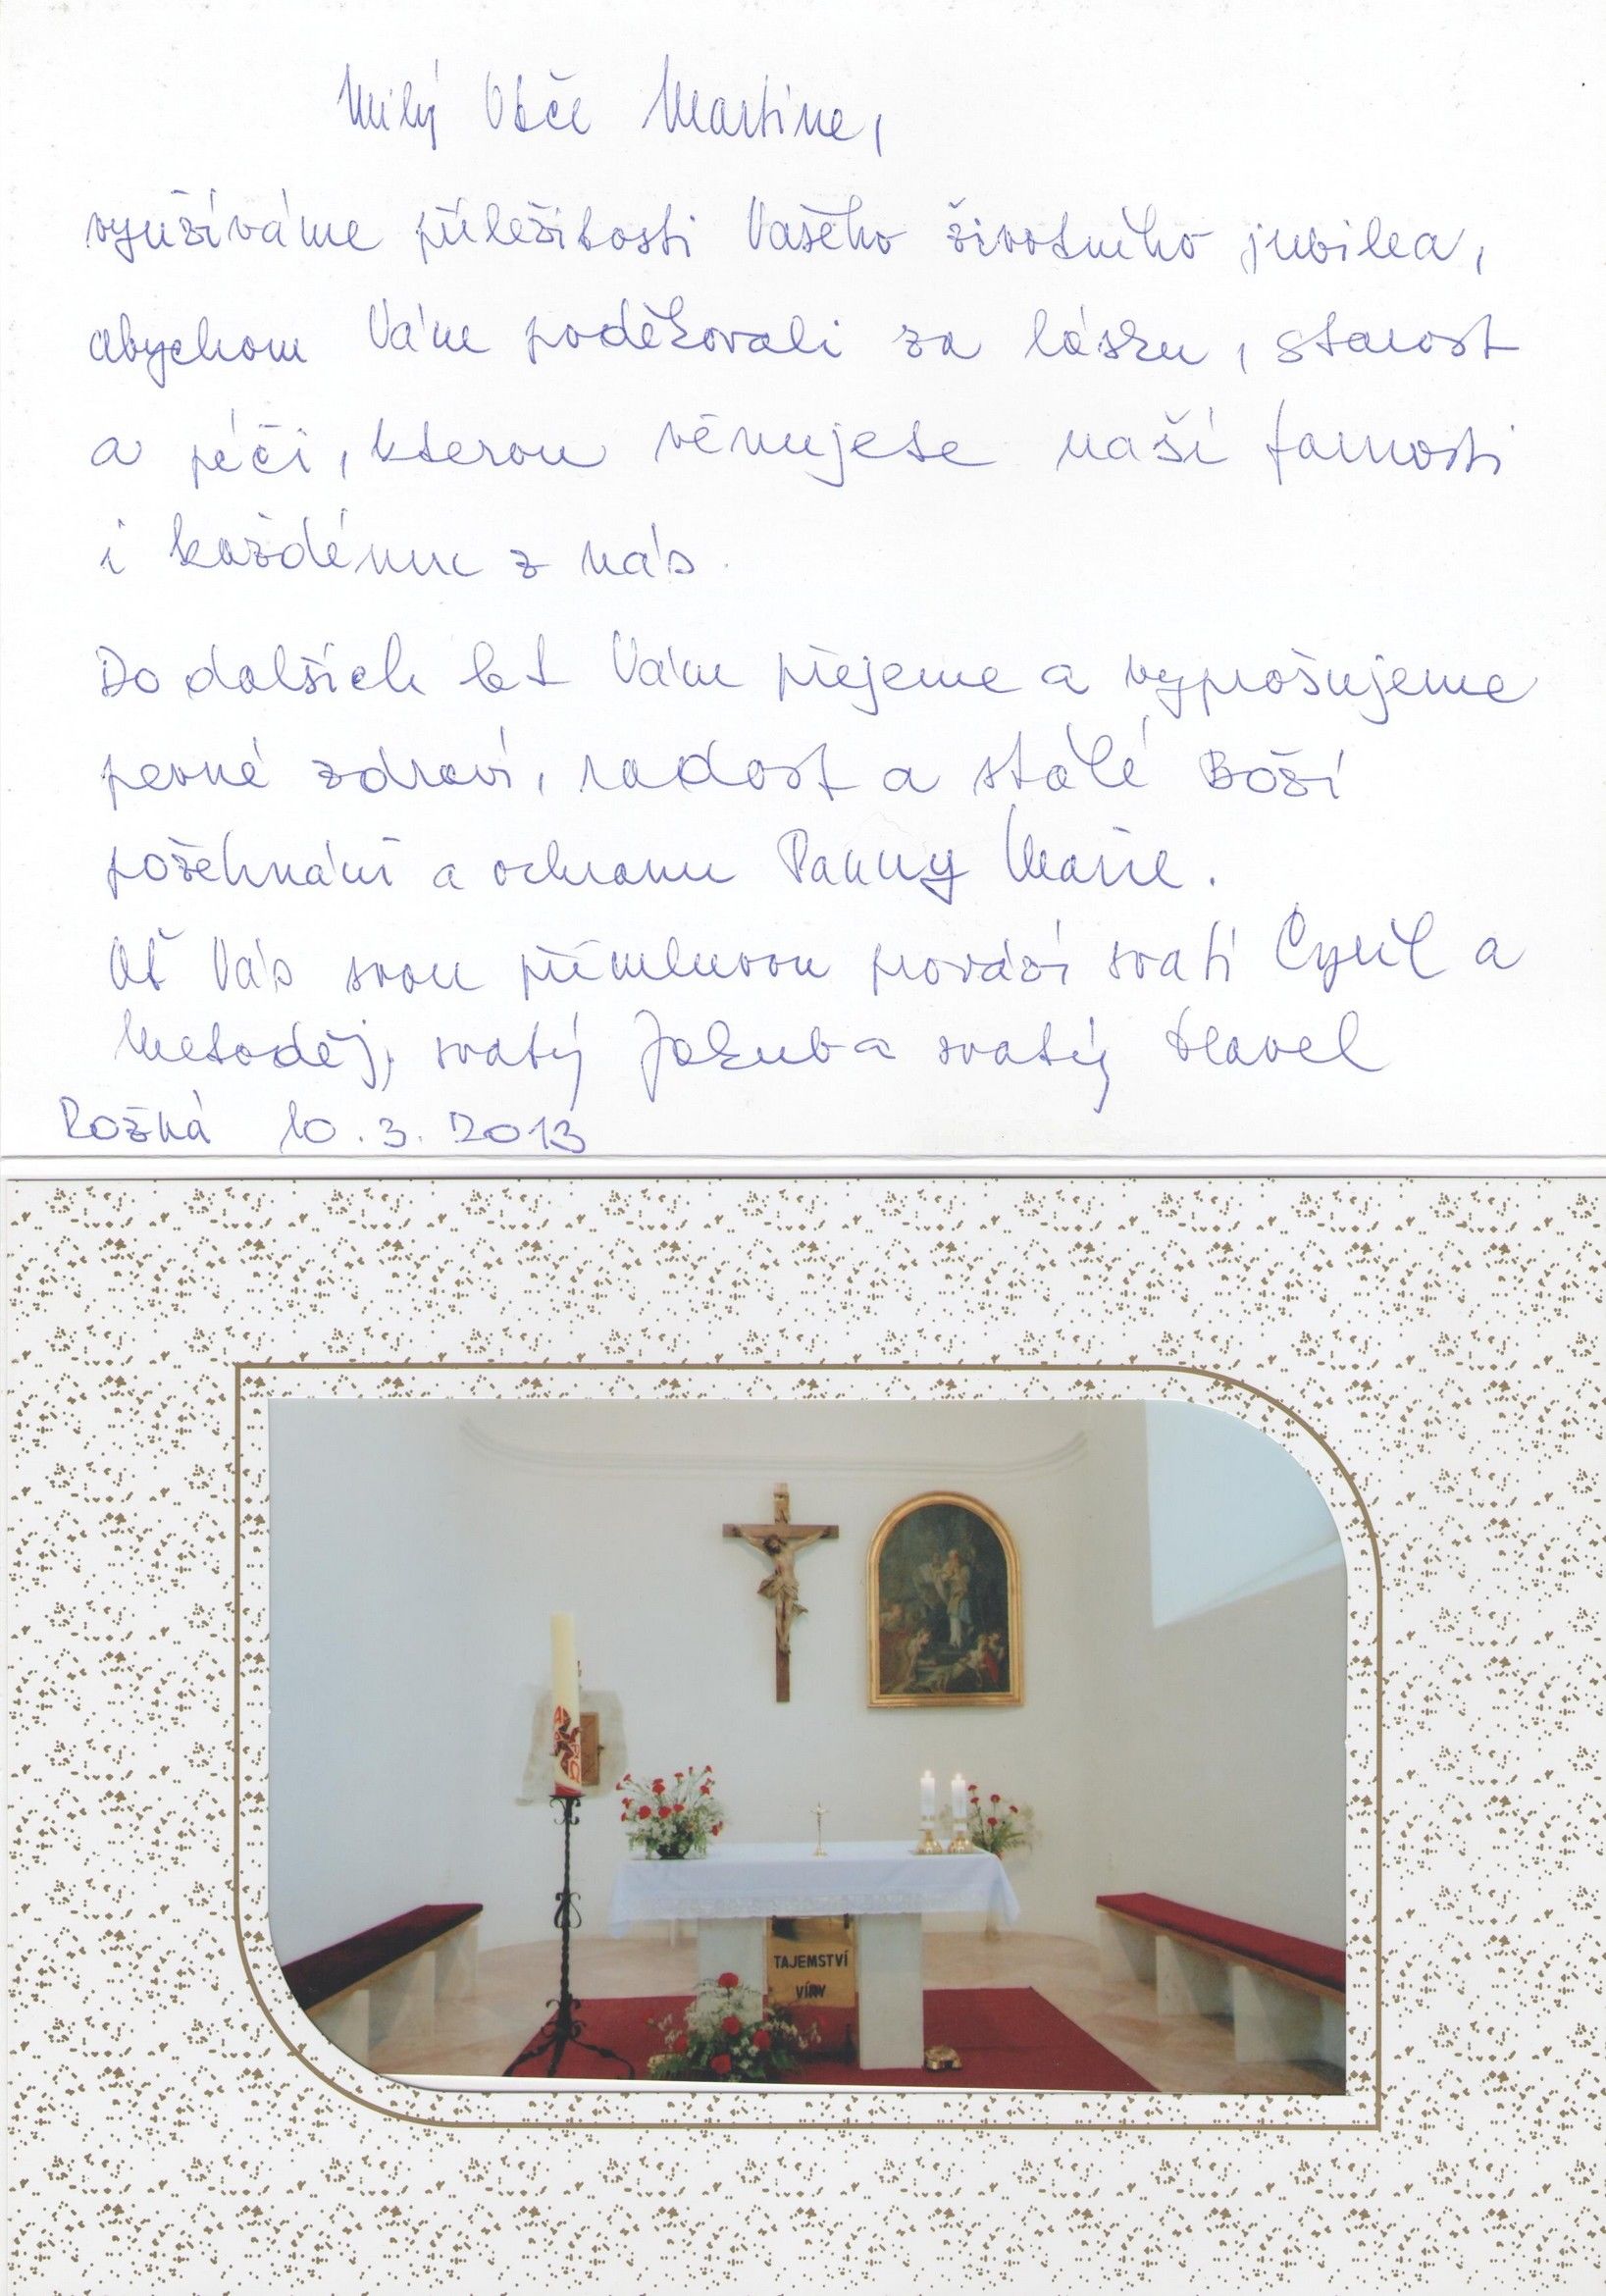 Milý Otče Martine,
využíváme příležitosti Vašeho životního jubilea,
abychom Vám poděkovali za lásku, starost
a péči, kterou věnujete naší farnosti
i každému z nás.
Do dalších let Vám přejeme a vyprošujeme
pevné zdraví, radost a stálé Boží
požehnání a ochranu Panny Marie.
Ať Vás svou přímluvou provází svatí Cyril a
Metoděj, svatý Jakub a svatý Havel
Rožná 10.3.2013
TAJEMSTVÍ
VÍRY